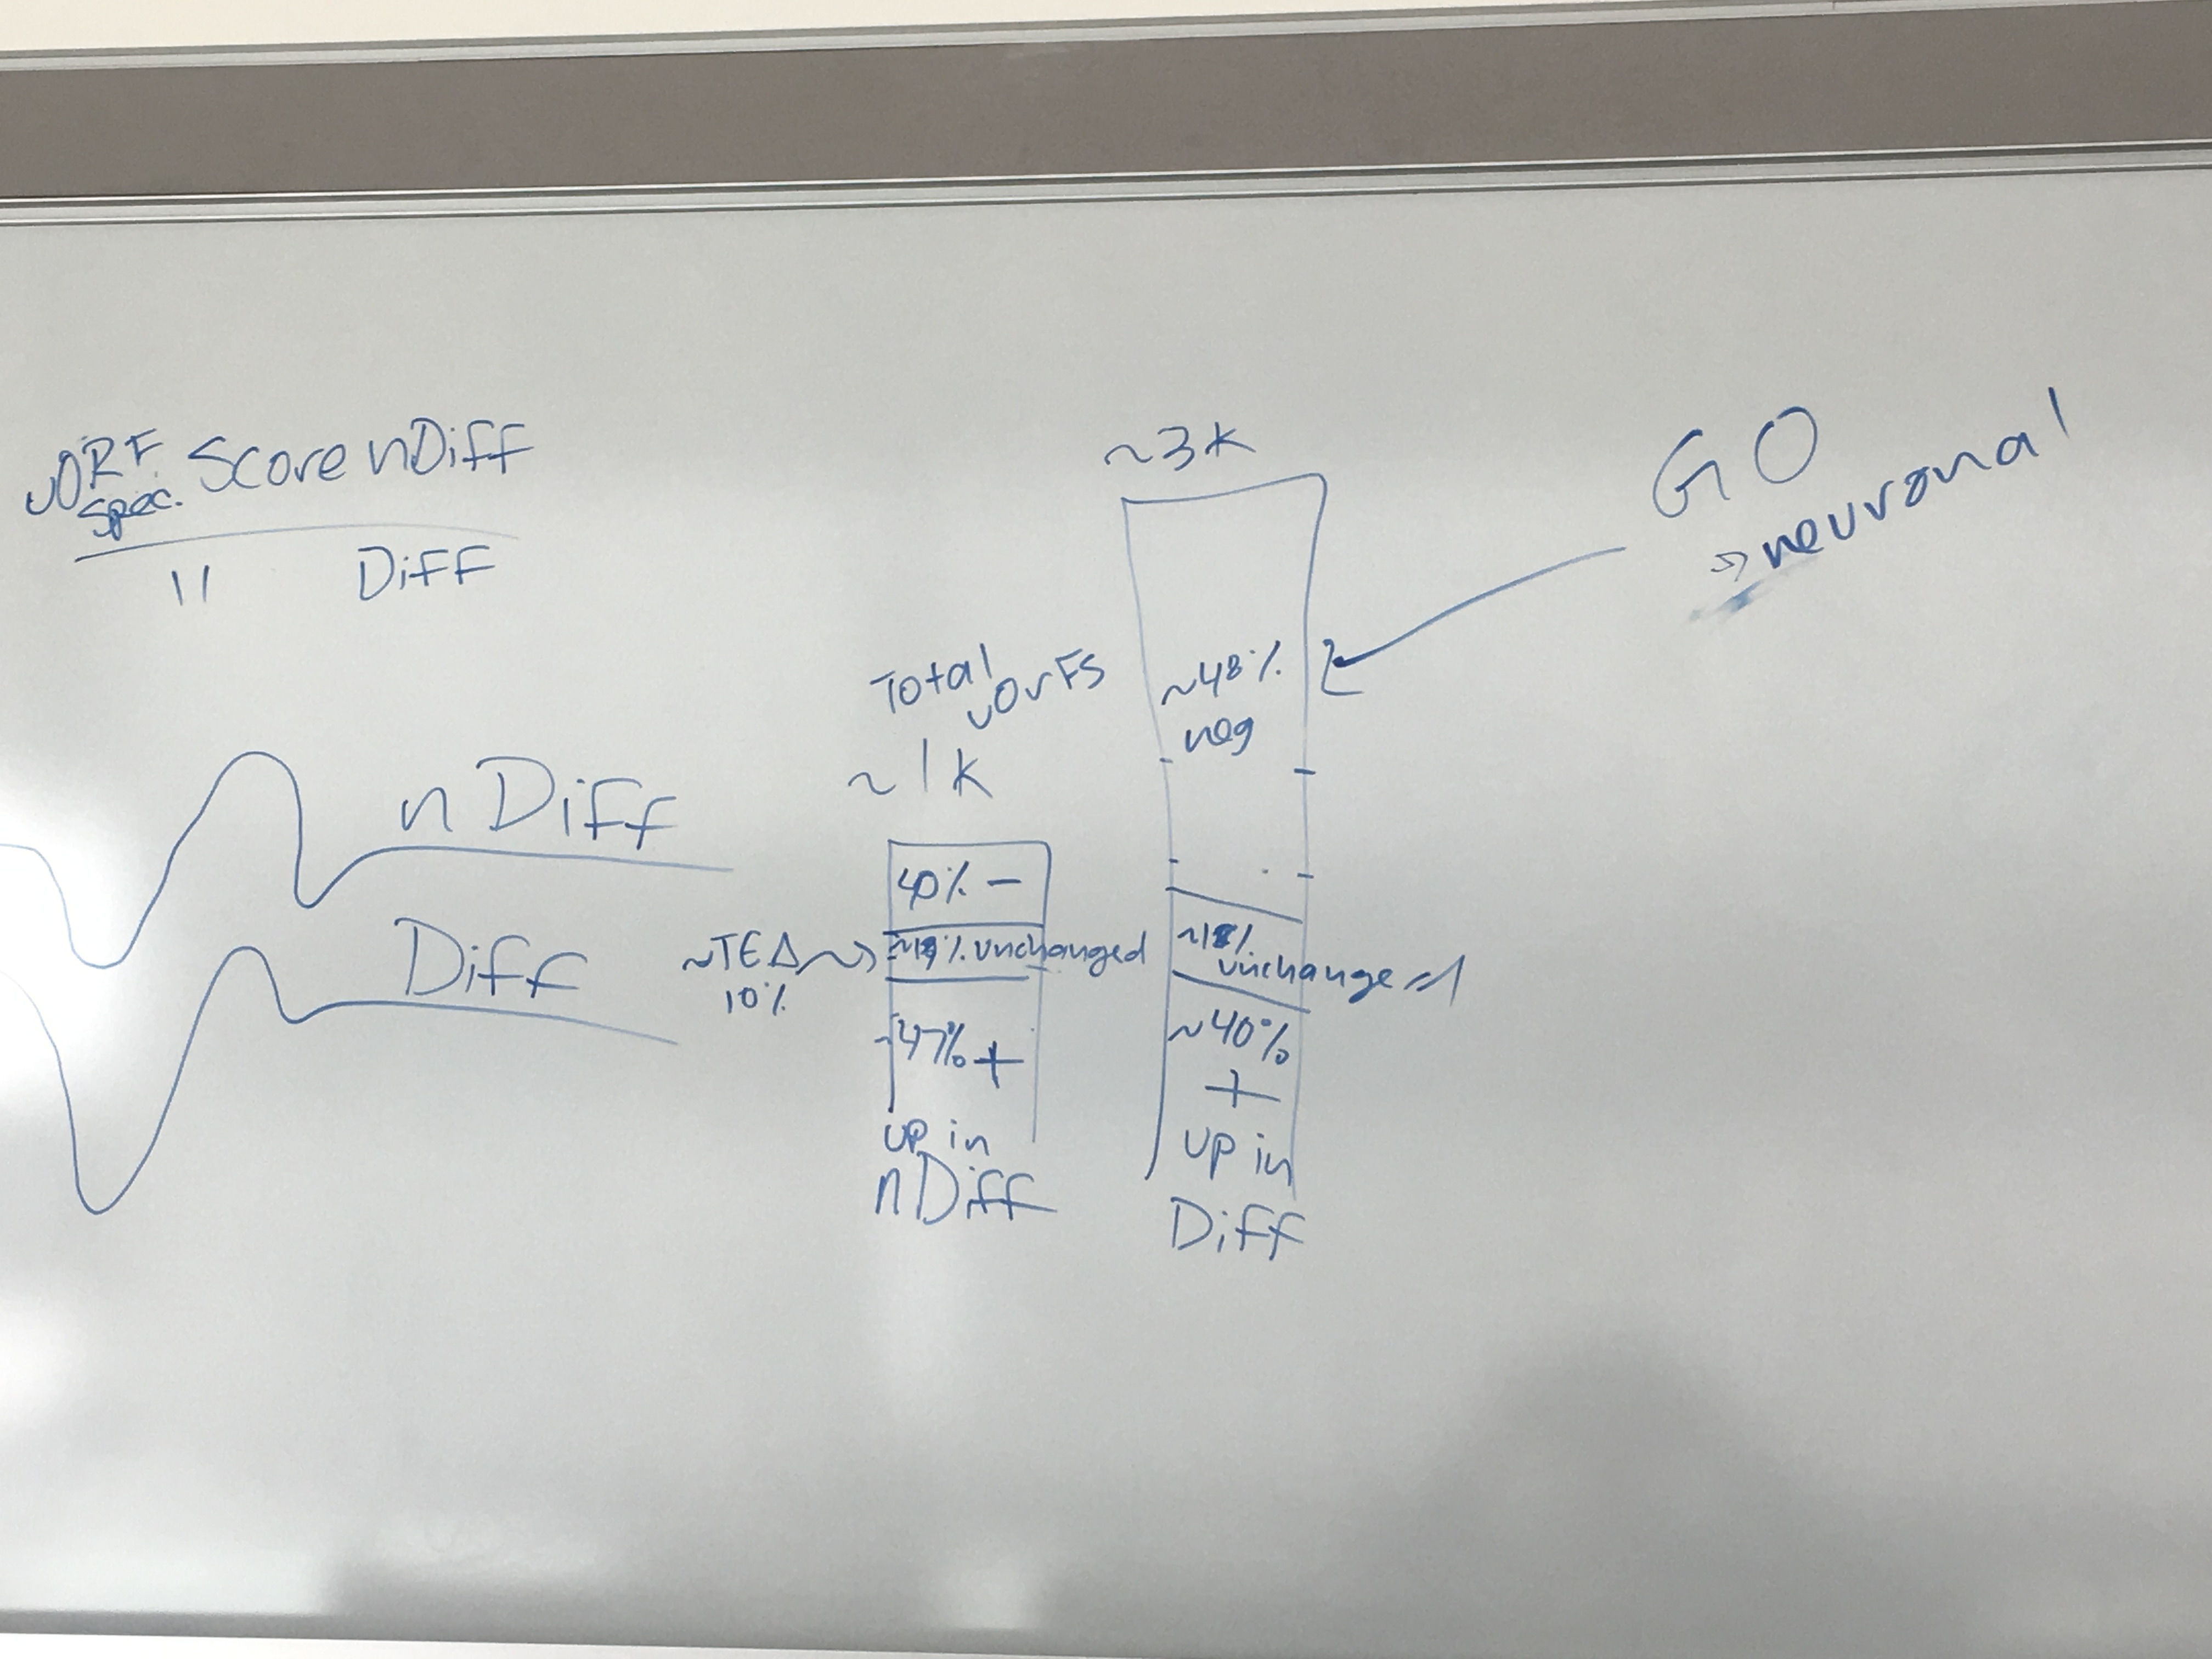 uORF spec. Score nDiff
11 Diff
nDiff
Diff
~TEΔ
10%
Total
uOrFs
~1K
40% −
unchanged
~47% +
up in
nDiff
~3K
~48%
neg
~18%
unchanged
~40%
+
up in
Diff
GO
neuronal